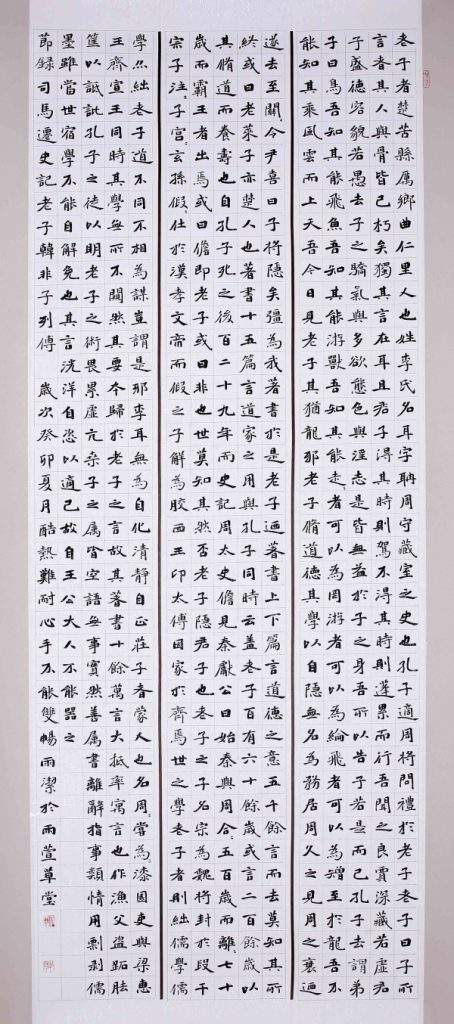 老子者楚苦縣厲鄉曲仁里人也姓李氏名耳字聃周守藏室之史也孔子適周將問禮於老子老子曰子所
言者其人與骨皆已朽矣獨其言在耳且君子得其時則駕不得其時則蓬累而行吾聞之良賈深藏若虛君
子盛德容貌若愚去子之驕氣與多欲態色與淫志是皆無益於子之身吾所以告子若是而已孔子去謂弟
子曰鳥吾知其能飛魚吾知其能游獸吾知其能走走者可以為罔游者可以為綸飛者可以為矰至於龍吾不
能知其乘風雲而上天吾今日見老子其猶龍邪老子脩道德其學以自隱無名為務居周久之見周之衰迺
遂去至關令尹喜曰子將隱矣彊為我著書於是老子迺著書上下篇言道德之意五千餘言而去莫知其所
終或曰老萊子亦楚人也著書十五篇言道家之用與孔子同時云蓋老子百有六十餘歲或言二百餘歲以
其脩道而養壽也自孔子死之後百二十九年而史記周太史儋見秦獻公曰始秦與周合五百歲而離七十
歲而霸王者出焉或曰儋即老子或曰非也世莫知其然否老子隱君子也老子之子名宗為魏將封於段干
宗子注子宮玄孫假仕於漢孝文帝而假之子解為膠西王卬太傅因家於齊焉世之學老子者則絀儒學儒
學亦絀老子道不同不相為謀豈謂是邪李耳無為自化清靜自正莊子者蒙人也名周嘗為漆園吏與梁惠
王齊宣王同時其學無所不闚然其要本歸於老子之言故其著書十餘萬言大抵率寓言也作漁父盜跖胠
篋以詆訿孔子之徒以明老子之術畏累虛亢桑子之屬皆空語無事實然善屬書離辭指事類情用剽剝儒
墨雖當世宿學不能自解免也其言洸洋自恣以適己故自王公大人不能器之
節錄司馬遷史記老子韓非子列傳 歲次癸卯夏月酷熱難耐心手不能雙暢雨潔於雨萱草堂